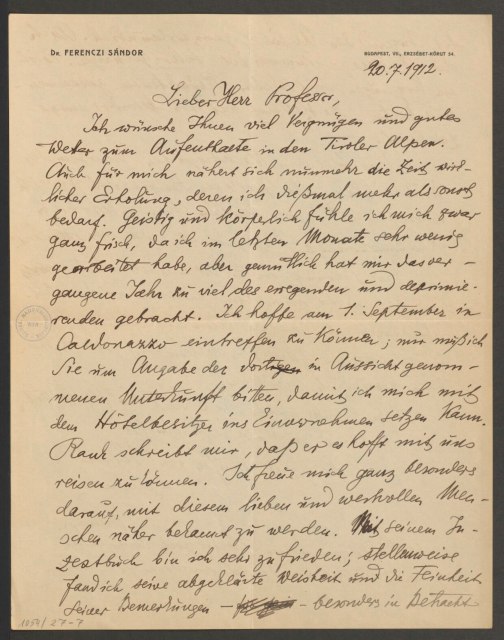 Dr. FERENCZI SÁNDOR
BUDAPEST, VII., ERZSÉBET-KÖRUT 54.
20.7.1912.
Lieber Herr Professor,
Ich wünsche Ihnen viel Vergnügen und gutes
Wetter zum Aufenthalte in den Tiroler Alpen.
Auch für mich nähert sich nunmehr die Zeit wirk-
licher Erholung, deren ich dießmal mehr als sonst
bedarf. Geistig und körperlich fühle ich mich zwar
ganz frisch, da ich im letzten Monate sehr wenig
gearbeitet habe, aber gemütlich hat mir das ver-
gangene Jahr zu viel des erregenden und deprimie-
renden gebracht. Ich hoffe am 1. September in
Caldonazzo eintreffen zu können; nur muß ich
Sie um Angabe der dortigen in Aussicht genom-
menen Unterkunft bitten, damit ich mich mit
dem Hôtelbesitzer ins Einvernehmen setzen kann.
Rank schreibt mir, daß er es hofft mit uns
reisen zu können. Ich freue mich ganz besonders
darauf, mit diesem lieben und wertvollen Men-
schen näher bekannt zu werden. Mit seinem In-
zestbuch bin ich sehr zufrieden; stellenweise
fand ich seine abgeklärte Weisheit und die Feinheit
seiner Bemerkungen - - besonders in Betracht
1054/27-7